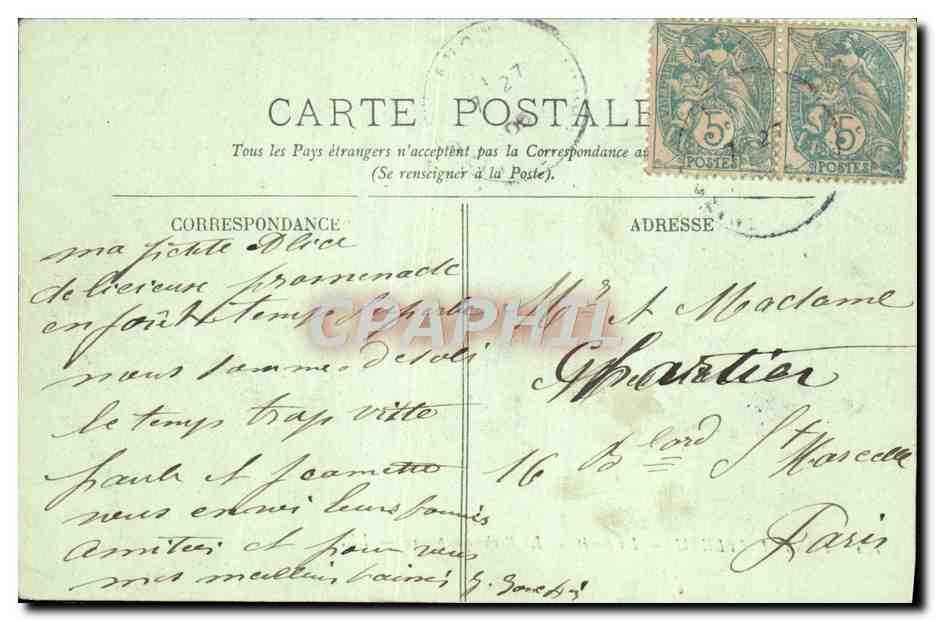 CARTE POSTALE
Tous les Pays étrangers n'acceptent pas la Correspondance au
(Se renseigner à la Poste).
5c
POSTES
5c
POSTES
CORRESPONDANCE
ma petite Alice
delicieuse promenade
en foût temps
nous somme desoli
le temps trop vitte
paule et Jeanette
vous envoi leurs bonnes
amitiés et pour vous
mes meilleurs baisers
ADRESSE
Mr et Madame
Chartier
16 Blord St Marcelle
Paris
CPAPHIL